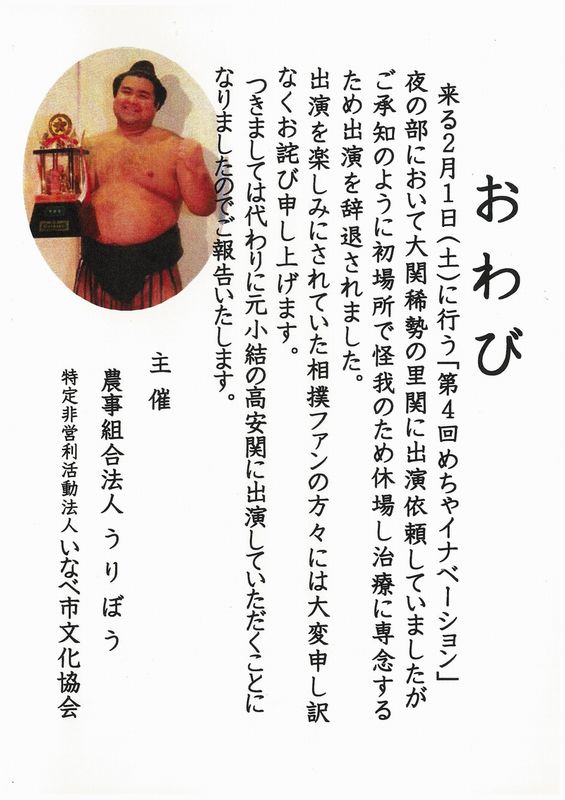 おわび
来る2月1日(土)に行う「第4回めちゃイナベーション」
夜の部において大関稀勢の里関に出演依頼していましたが
ご承知のように初場所で怪我のため休場し治療に専念する
ため出演を辞退されました。
出演を楽しみにされていた相撲ファンの方々には大変申し訳
なくお詫び申し上げます。
つきましては代わりに元小結の高安関に出演していただくことに
なりましたのでご報告いたします。
主催
農事組合法人 うりぼう
特定非営利活動法人 いなべ市文化協会